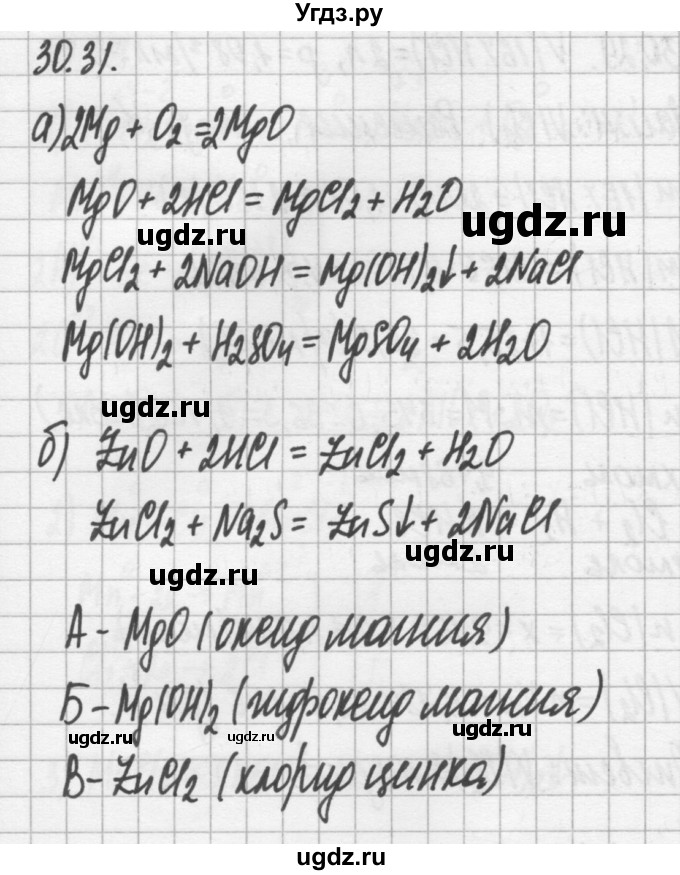 Угдз.ру
30.31.
а) 2Mg + O₂ = 2MgO
MgO + 2HCl = MgCl₂ + H₂O
ugdz.ru ugdz.ru
MgCl₂ + 2NaOH = Mg(OH)₂↓ + 2NaCl
Mg(OH)₂ + H₂SO₄ = MgSO₄ + 2H₂O
ugdz.ru
б) ZnO + 2HCl = ZnCl₂ + H₂O
ZnCl₂ + Na₂S = ZnS↓ + 2NaCl
ugdz.ru ugdz.ru
А - MgO (оксид магния)
Б - Mg(OH)₂ (гидроксид магния)
ugdz.ru ugdz.ru ugdz.ru
В - ZnCl₂ (хлорид цинка)
ugdz.ru